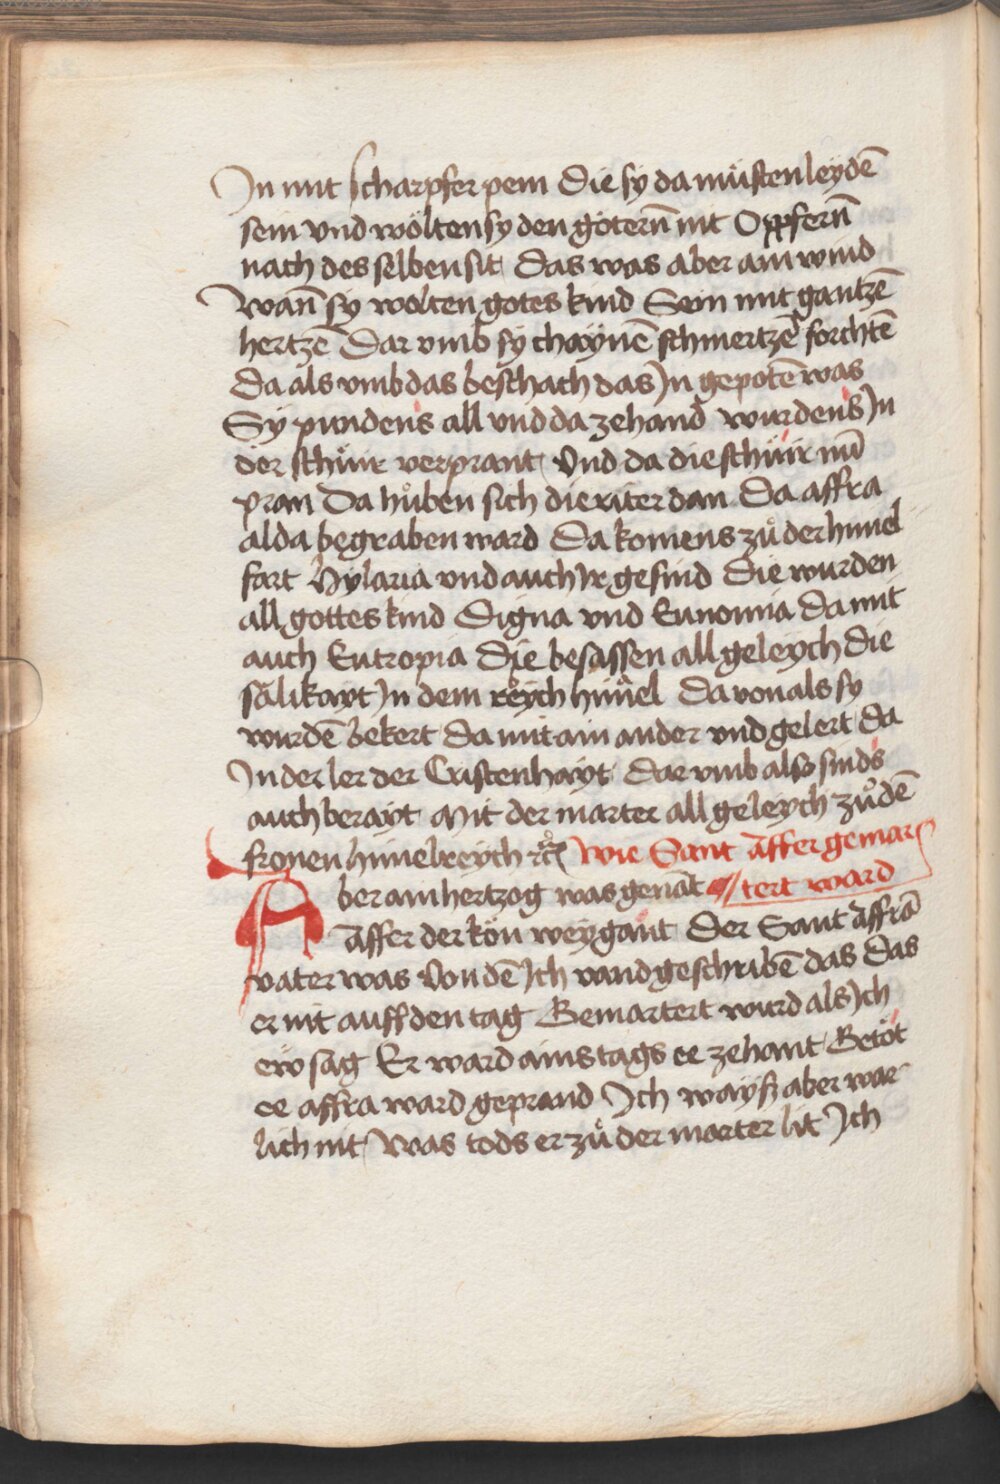 In mit scharpfer pein Die sy da müsten leydē
sein vnd wölten sy den götern̄ nit Opfern̄
nach des selben sit Das was aber ain wind
Wan̄ sy wolten gotes kind Sein mit gantzē
hertzē Dar vmb sy chaynē schmertzē forchtē
Da als vmb das beschach das In gepotē was
Sy pundens all vnd da zehand wurdens In
der schür verprant Vnd da die schür nū
pran Da hůben sich die riter dan Da affra
alda begraben ward Da komens zů der himel
fart Hylaria vnd auch Ir gesind Die wurden
all gottes kind Digna vnd Eunomia Da mit
auch Eutropia Die besassen all geleych die
sälikayt In dem reych himel Da von als sy
wurdē bekert Da mit ain ander vnd gelert Da
In der ler der Cristenhayt Dar vmb also sinds
auch berayt Mit der marter all geleych zů dē
fronen himelreych ꝛc Wie Sant āffer gemar
Aber ain hertzog was genāt tert ward
āffer der kön weygant Der Sant āffrā
vater was Von dē Ich vand geschribē das Das
er nit auff den tag Gemartert wurd als Ich
ew sag Er ward ains tags ee zehant Getöt
ee affra ward geprand Ich wayß aber war
lich nit Was tods er zů der marter lit Ich